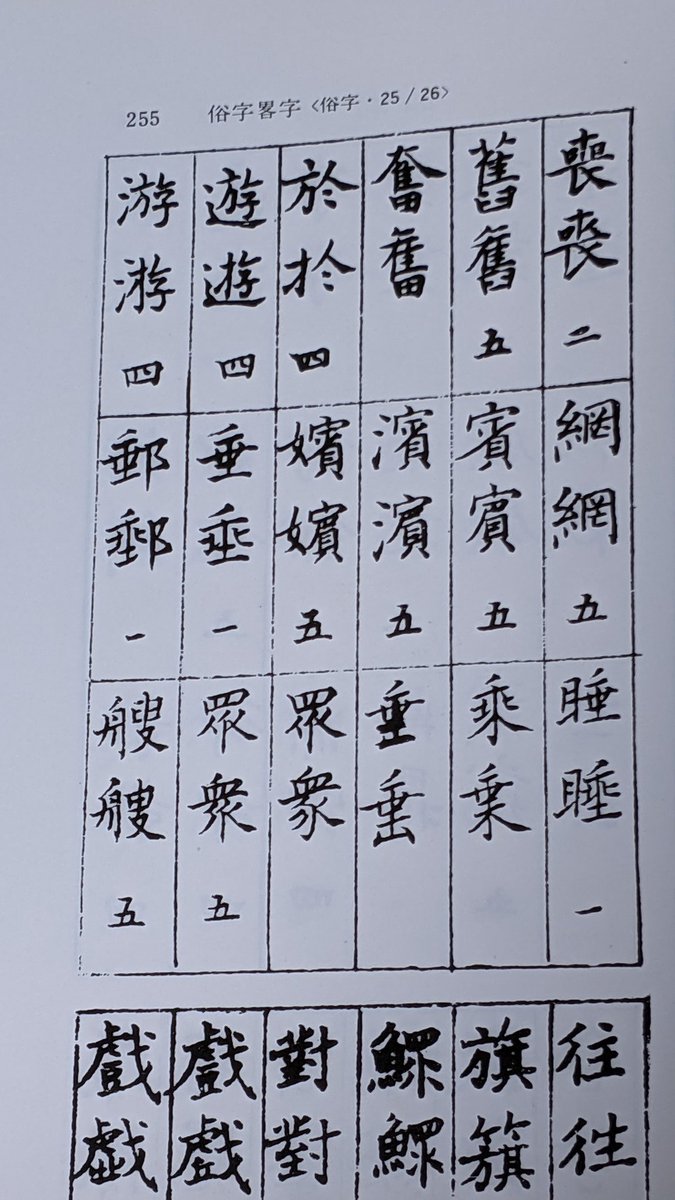 255 俗字畧字〈俗字・25/26〉
喪喪二
舊舊五
奮奮
於扵四
遊遊四
游游四
網網五
賓賔五
濱濵五
嬪嬪五
垂埀一
郵郵一
睡睡一
乘乗
垂
眾衆
眾衆五
艘艘五
往徃
旗籏
鰥鰥
對對
戲戲
戲戯